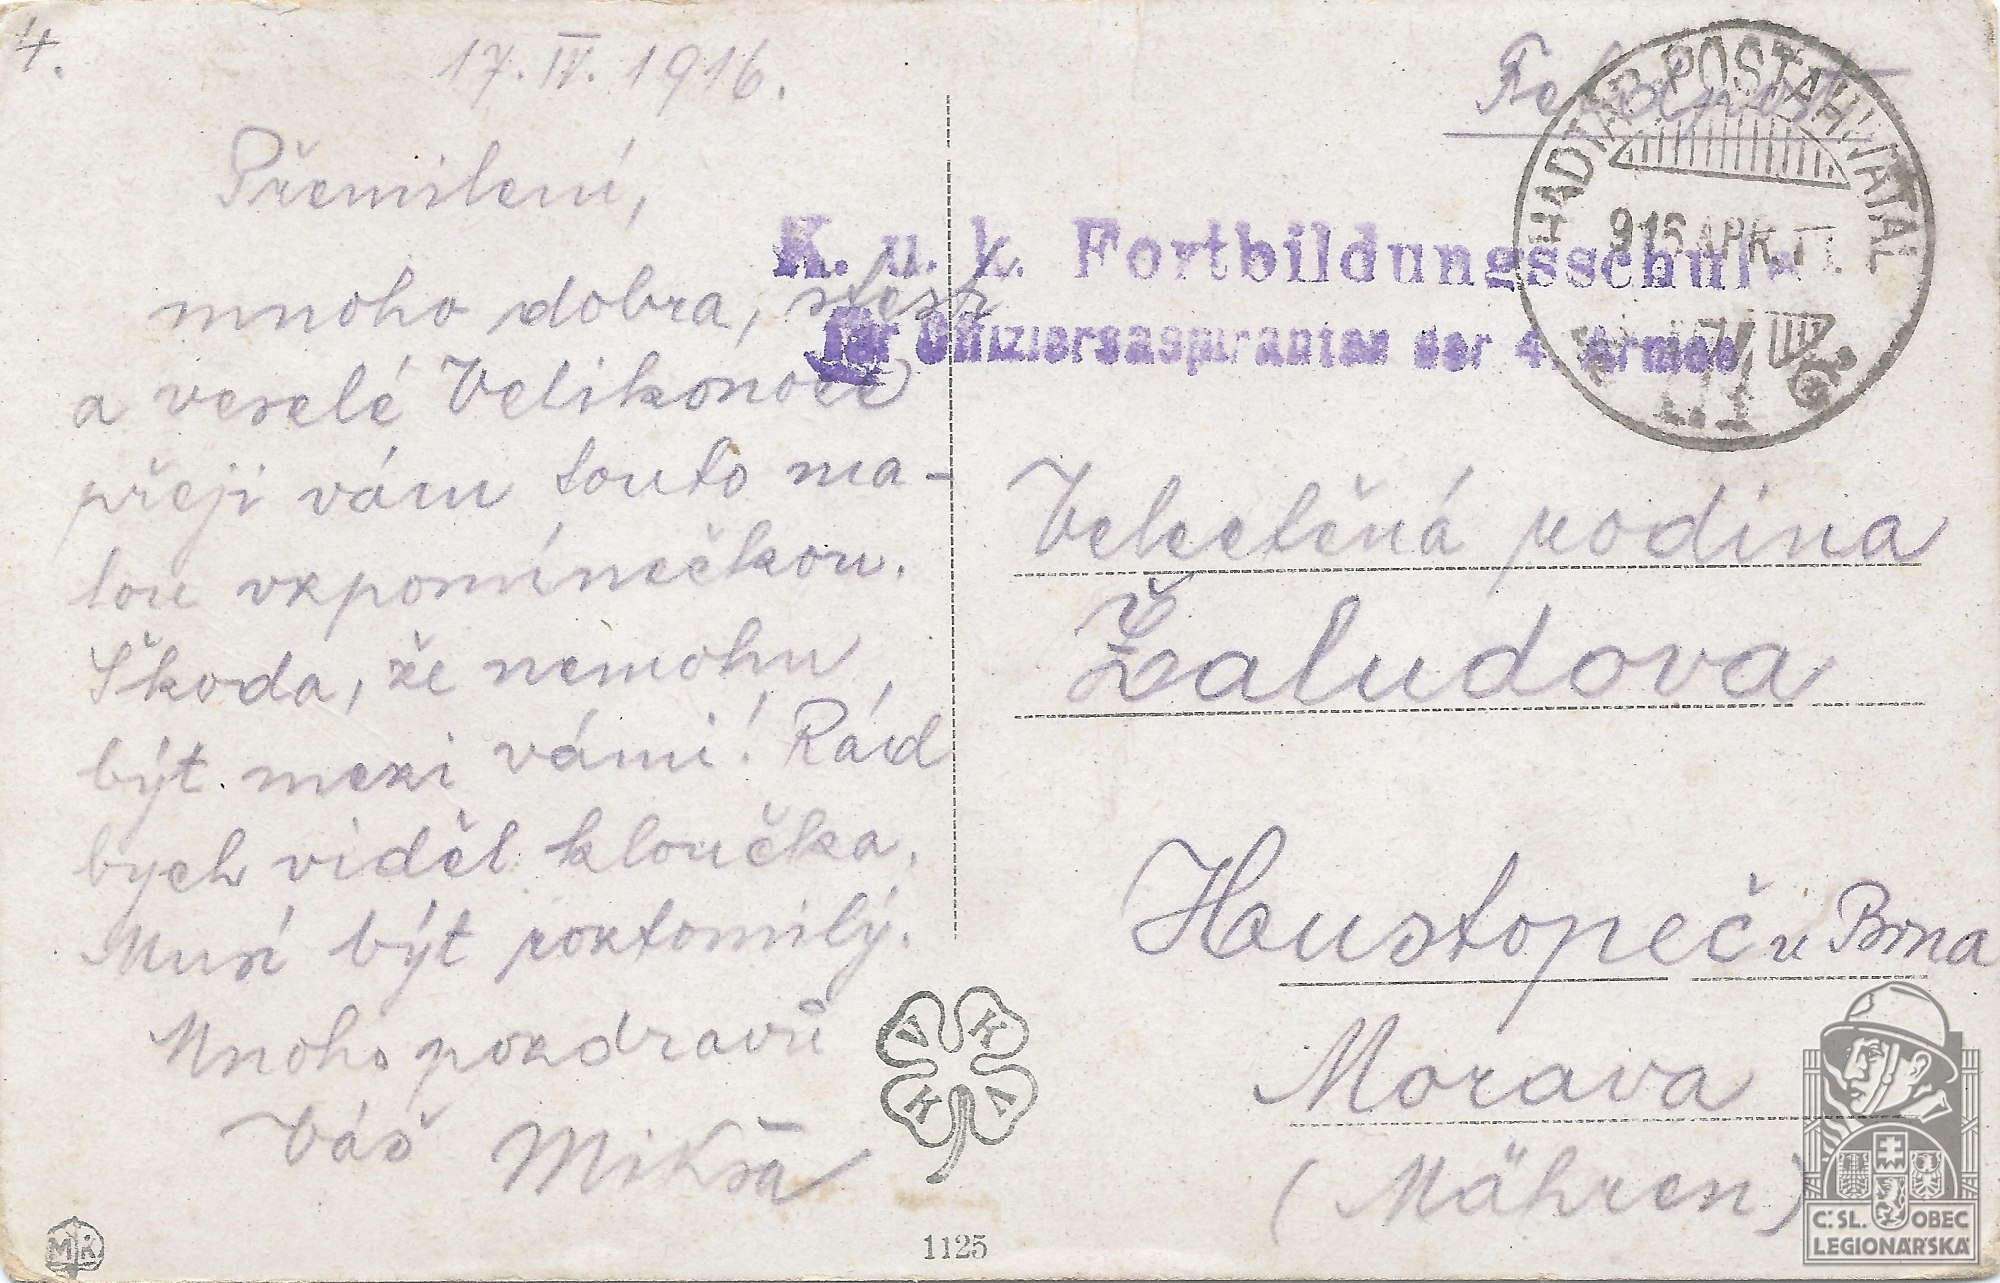 4.
17. IV. 1916.
Přemilení,
mnoho dobra, štěstí
a veselé Velikonoce
přeji vám touto ma-
lou vzpomínečkou.
Škoda, že nemohu
být mezi vámi! Rád
bych viděl kloučka.
Musí být roztomilý.
Mnoho pozdravů
Váš Mikša
Feldpost
K. u. k. Fortbildungsschule
für Offiziersaspiranten der 4. Armee
HADTÁP-POSTAHIVATAL
916 APR.
Velectěná rodina
Žaludova
Hustopeč u Brna
Morava
(Mähren)
V K
K V
MK
1125
Č.SL. OBEC
LEGIONÁŘSKÁ